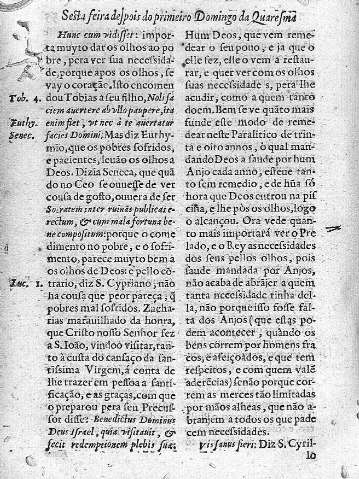 Sesta feira despois do primeiro Domingo da Quaresma
Hunc cum vidisset: impor-
ta muyto dar os olhos ao po
bre, pera ver sua necessida-
de, porque apos os olhos, se
vay o coração, isto encomen
dou Tobias a seu filho, Noli fa
ciem auertere ab vllo paupere, ita
enim fiet, vt nec à te auertatur
facies Domini; Mas diz Euthy-
mio, que os pobres sofridos,
e pacientes, leuão os olhos a
Deos. Dizia Seneca, que quã
do no Ceo se ouuesse de ver
cousa de gosto, ouuera de ser
inter ruinas publicas e-
rectum, & cum mala fortuna be-
ne compositum: porque o come
dimento no pobre, e o sofri-
mento, parece muyto bem a
os olhos de Deos e pello cõ-
trario, diz S. Cypriano; não
ha cousa que peor pareça, q̃
pobres mal sofridos. Zacha-
rias marauilhado da honra,
que Christo nosso Senhor fez
a S. Ioão, vindoo visitar, tan-
to à custa do cansaço da san-
tissima Virgem, à conta de
lhe trazer em pessoa a santi-
ficação, e as graças, com que
o preparou pera seu Precur-
sor disse: Benedictus Dominus
Deus Israel, quia visitauit, &
fecit redemptionem plebis suæ:
Tob. 4.
Euthy.
Senec.
Luc. 1.
Hum Deos, que vem reme-
dear o seu pouo, e ja que o
elle fez, elle o vem a restau-
rar, e quer ver com os olhos
suas necessidades, pera lhe
acudir, como a quem tanto
doem. Bem se ve quãto mais
funde este modo de reme-
dear neste Paralitico de trin-
ta e oito annos, o qual man-
dando Deos a saude por hum
Anjo cada anno, esteue tan-
to sem remedio, e de hũa só
hora que Deos entrou na pis-
cina, e lhe pòs os olhos, logo
o alcançou. Ora vede quan-
to mais importarà ver o Pre
lado, e o Rey as necessidades
dos seus pellos olhos, pois
saude mandada por Anjos,
não acaba de abrãjer a quem
tanta necessidade tinha del-
la, não porque isso fosse fal-
ta dos Anjos (que estas po-
dem acontecer, quando os
bens correm por homens fra
cos, e afeiçoados, e que tem
respeitos, e com quem valẽ
aderẽcias) senão porque cor-
rem as merces tão limitadas
por mãos alheas, que não a-
branjem a todos os que pade
cem necessidades.
Vis sanus fieri: Diz S. Cyril-
lo